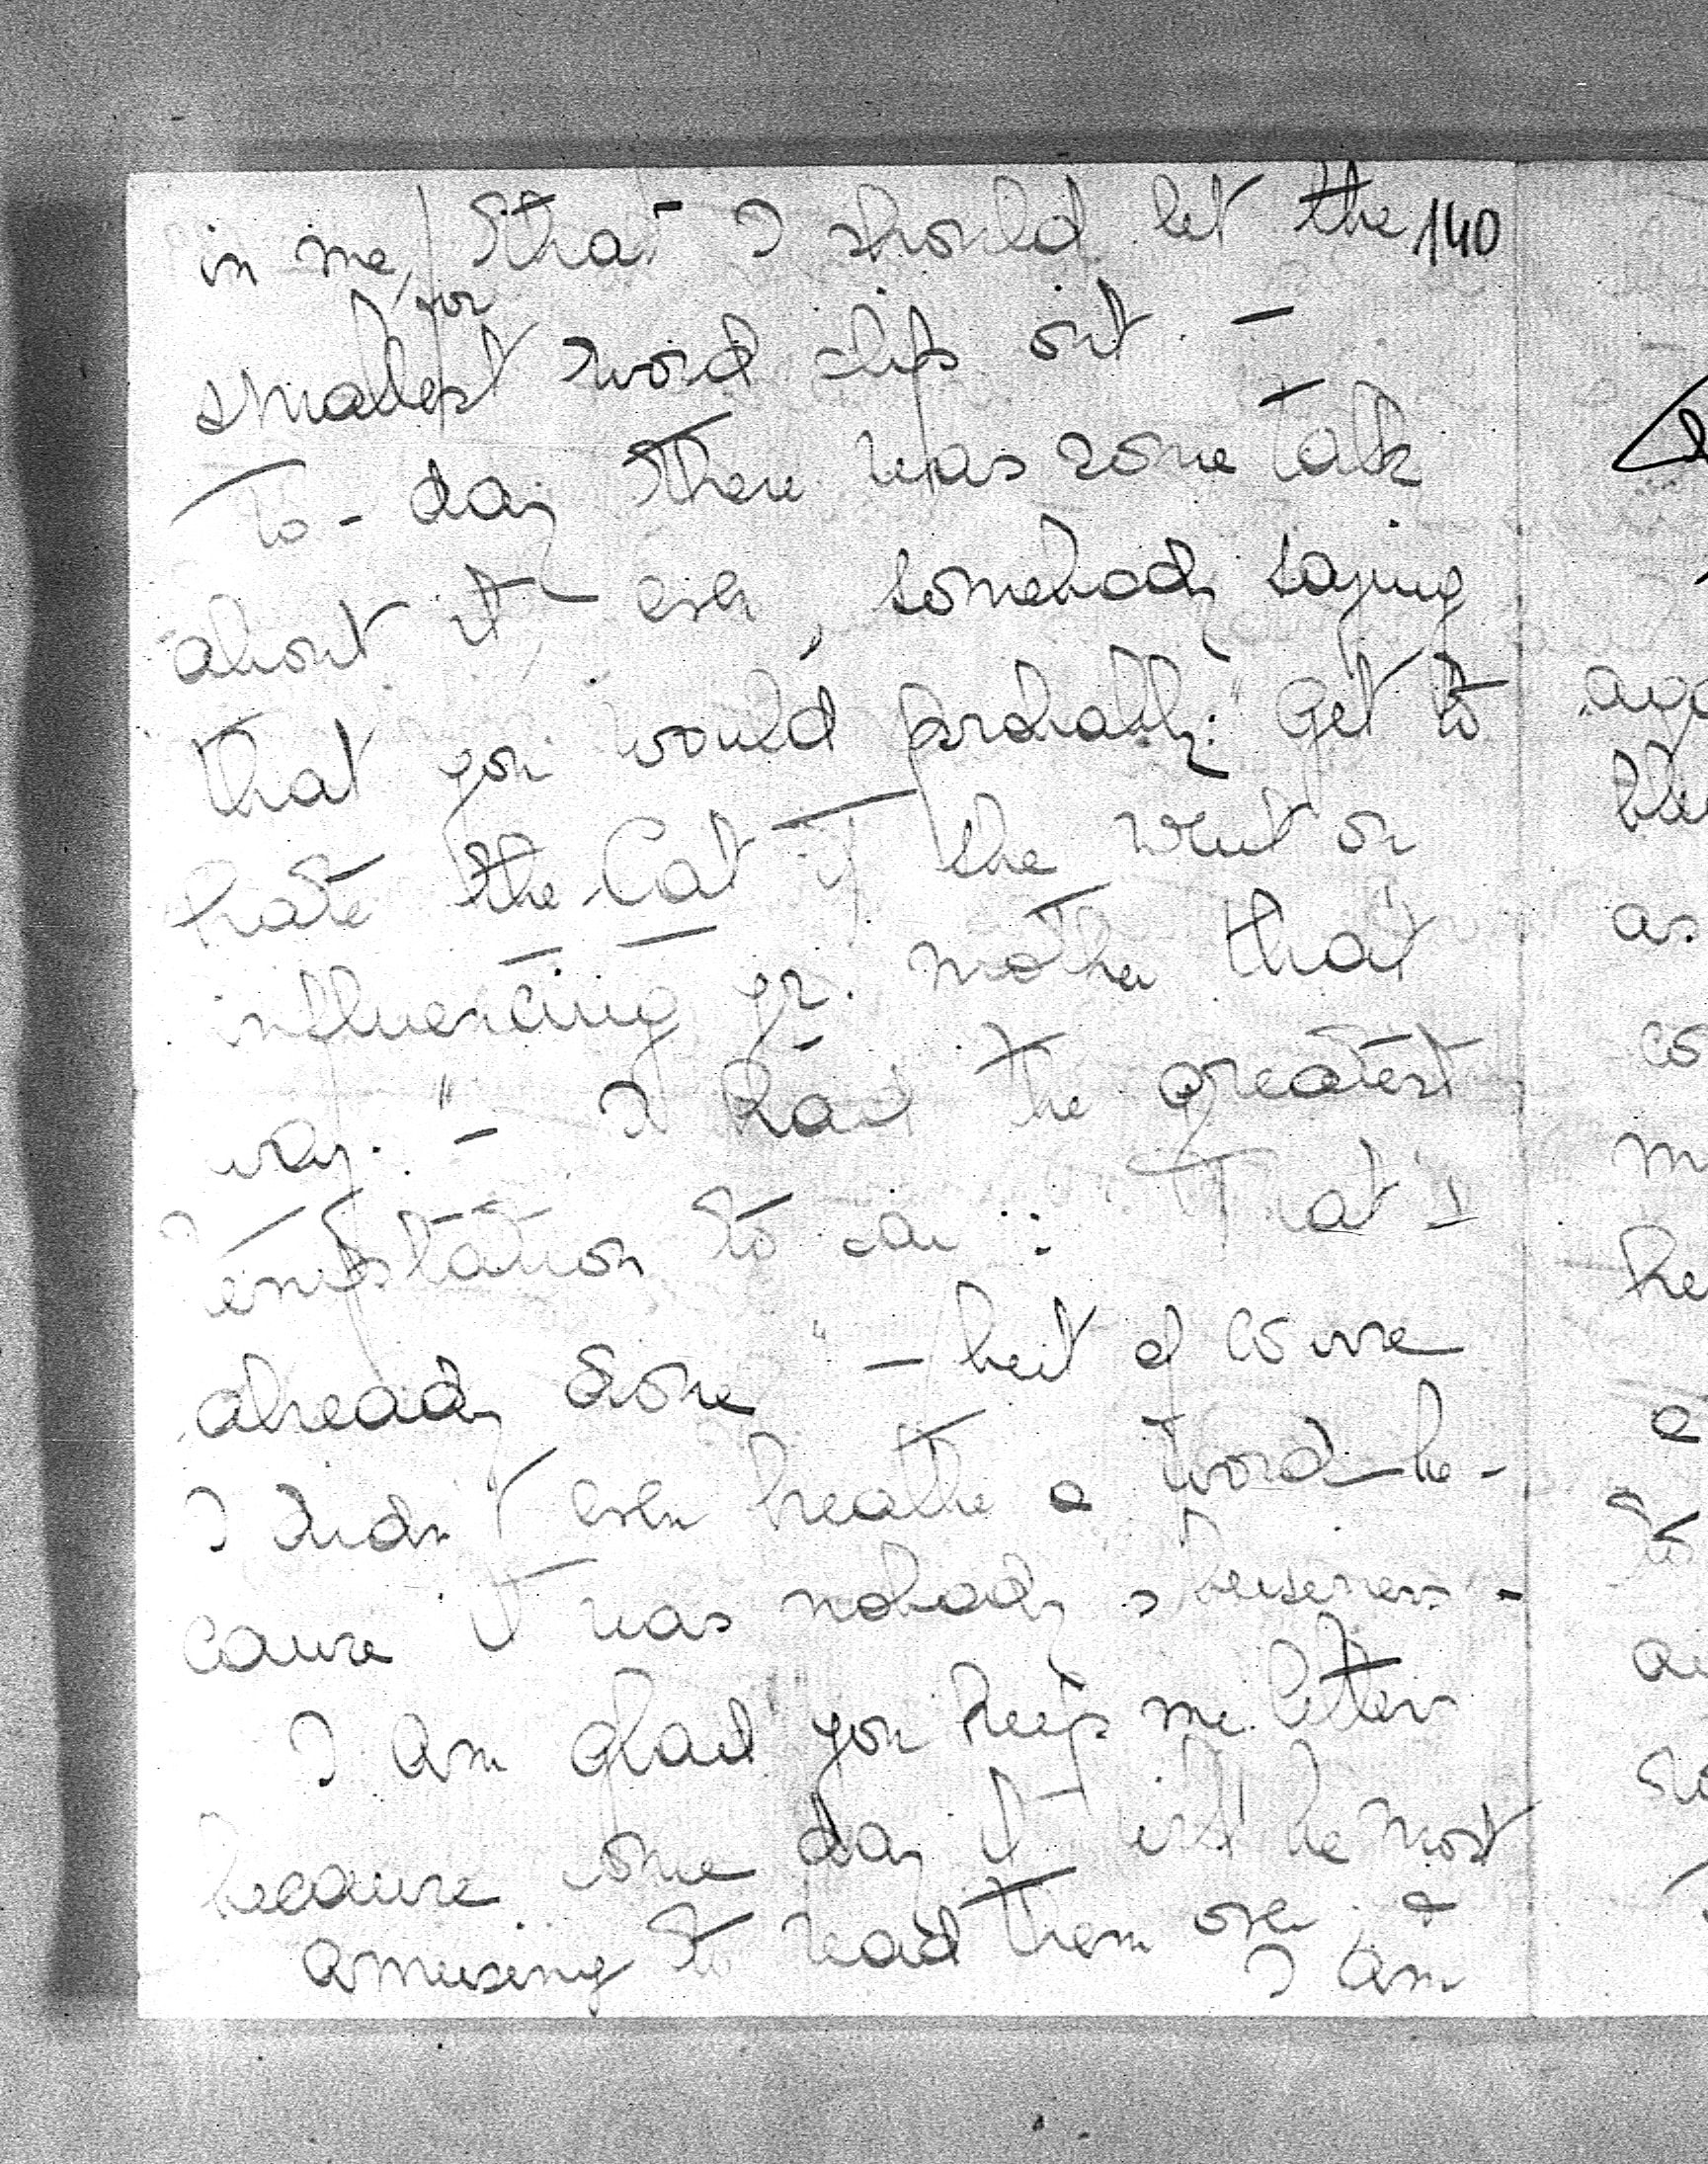 in me, that I should let the 140
for
smallest word slip out. —
To-day there was some talk
about it even, somebody saying
that you would probably: "get to
hate the Cat if she went on
influencing yr. mother that
way." — I had the greatest
temptation to say: "That I
already done" — but of course
I didn't even breathe a word be-
cause it was nobody's business -
I am glad you keep me letters
because some day it will be most
amusing to read them over, &
I am